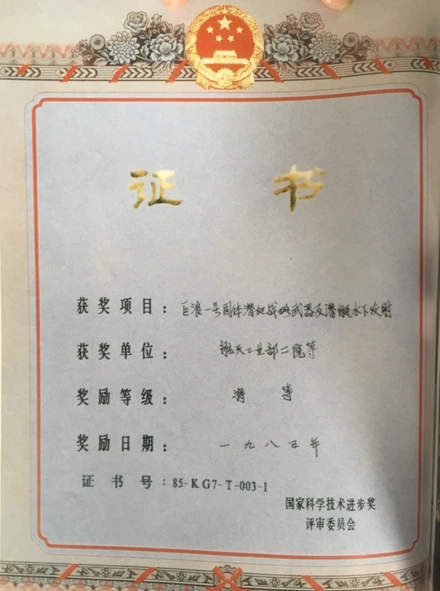 证 书
获奖项目：巨浪一号固体潜地战略武器及潜艇水下发射
获奖单位：航天工业部二院等
奖励等级：特等
奖励日期：一九八五年
证书号：85-KG7-T-003-1
国家科学技术进步奖
评审委员会